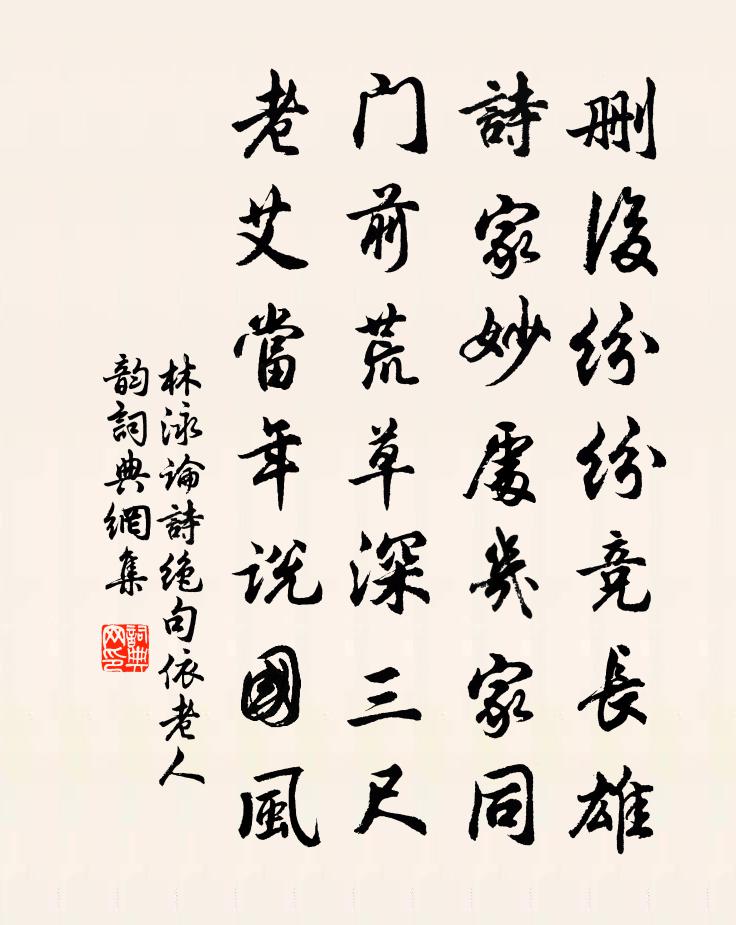 删後紛紛竞長雄
詩家妙處幾家同
门前荒草深三尺
老艾當年説國風
林泳論詩絶句依老人
韵詞典網集
詞典網印